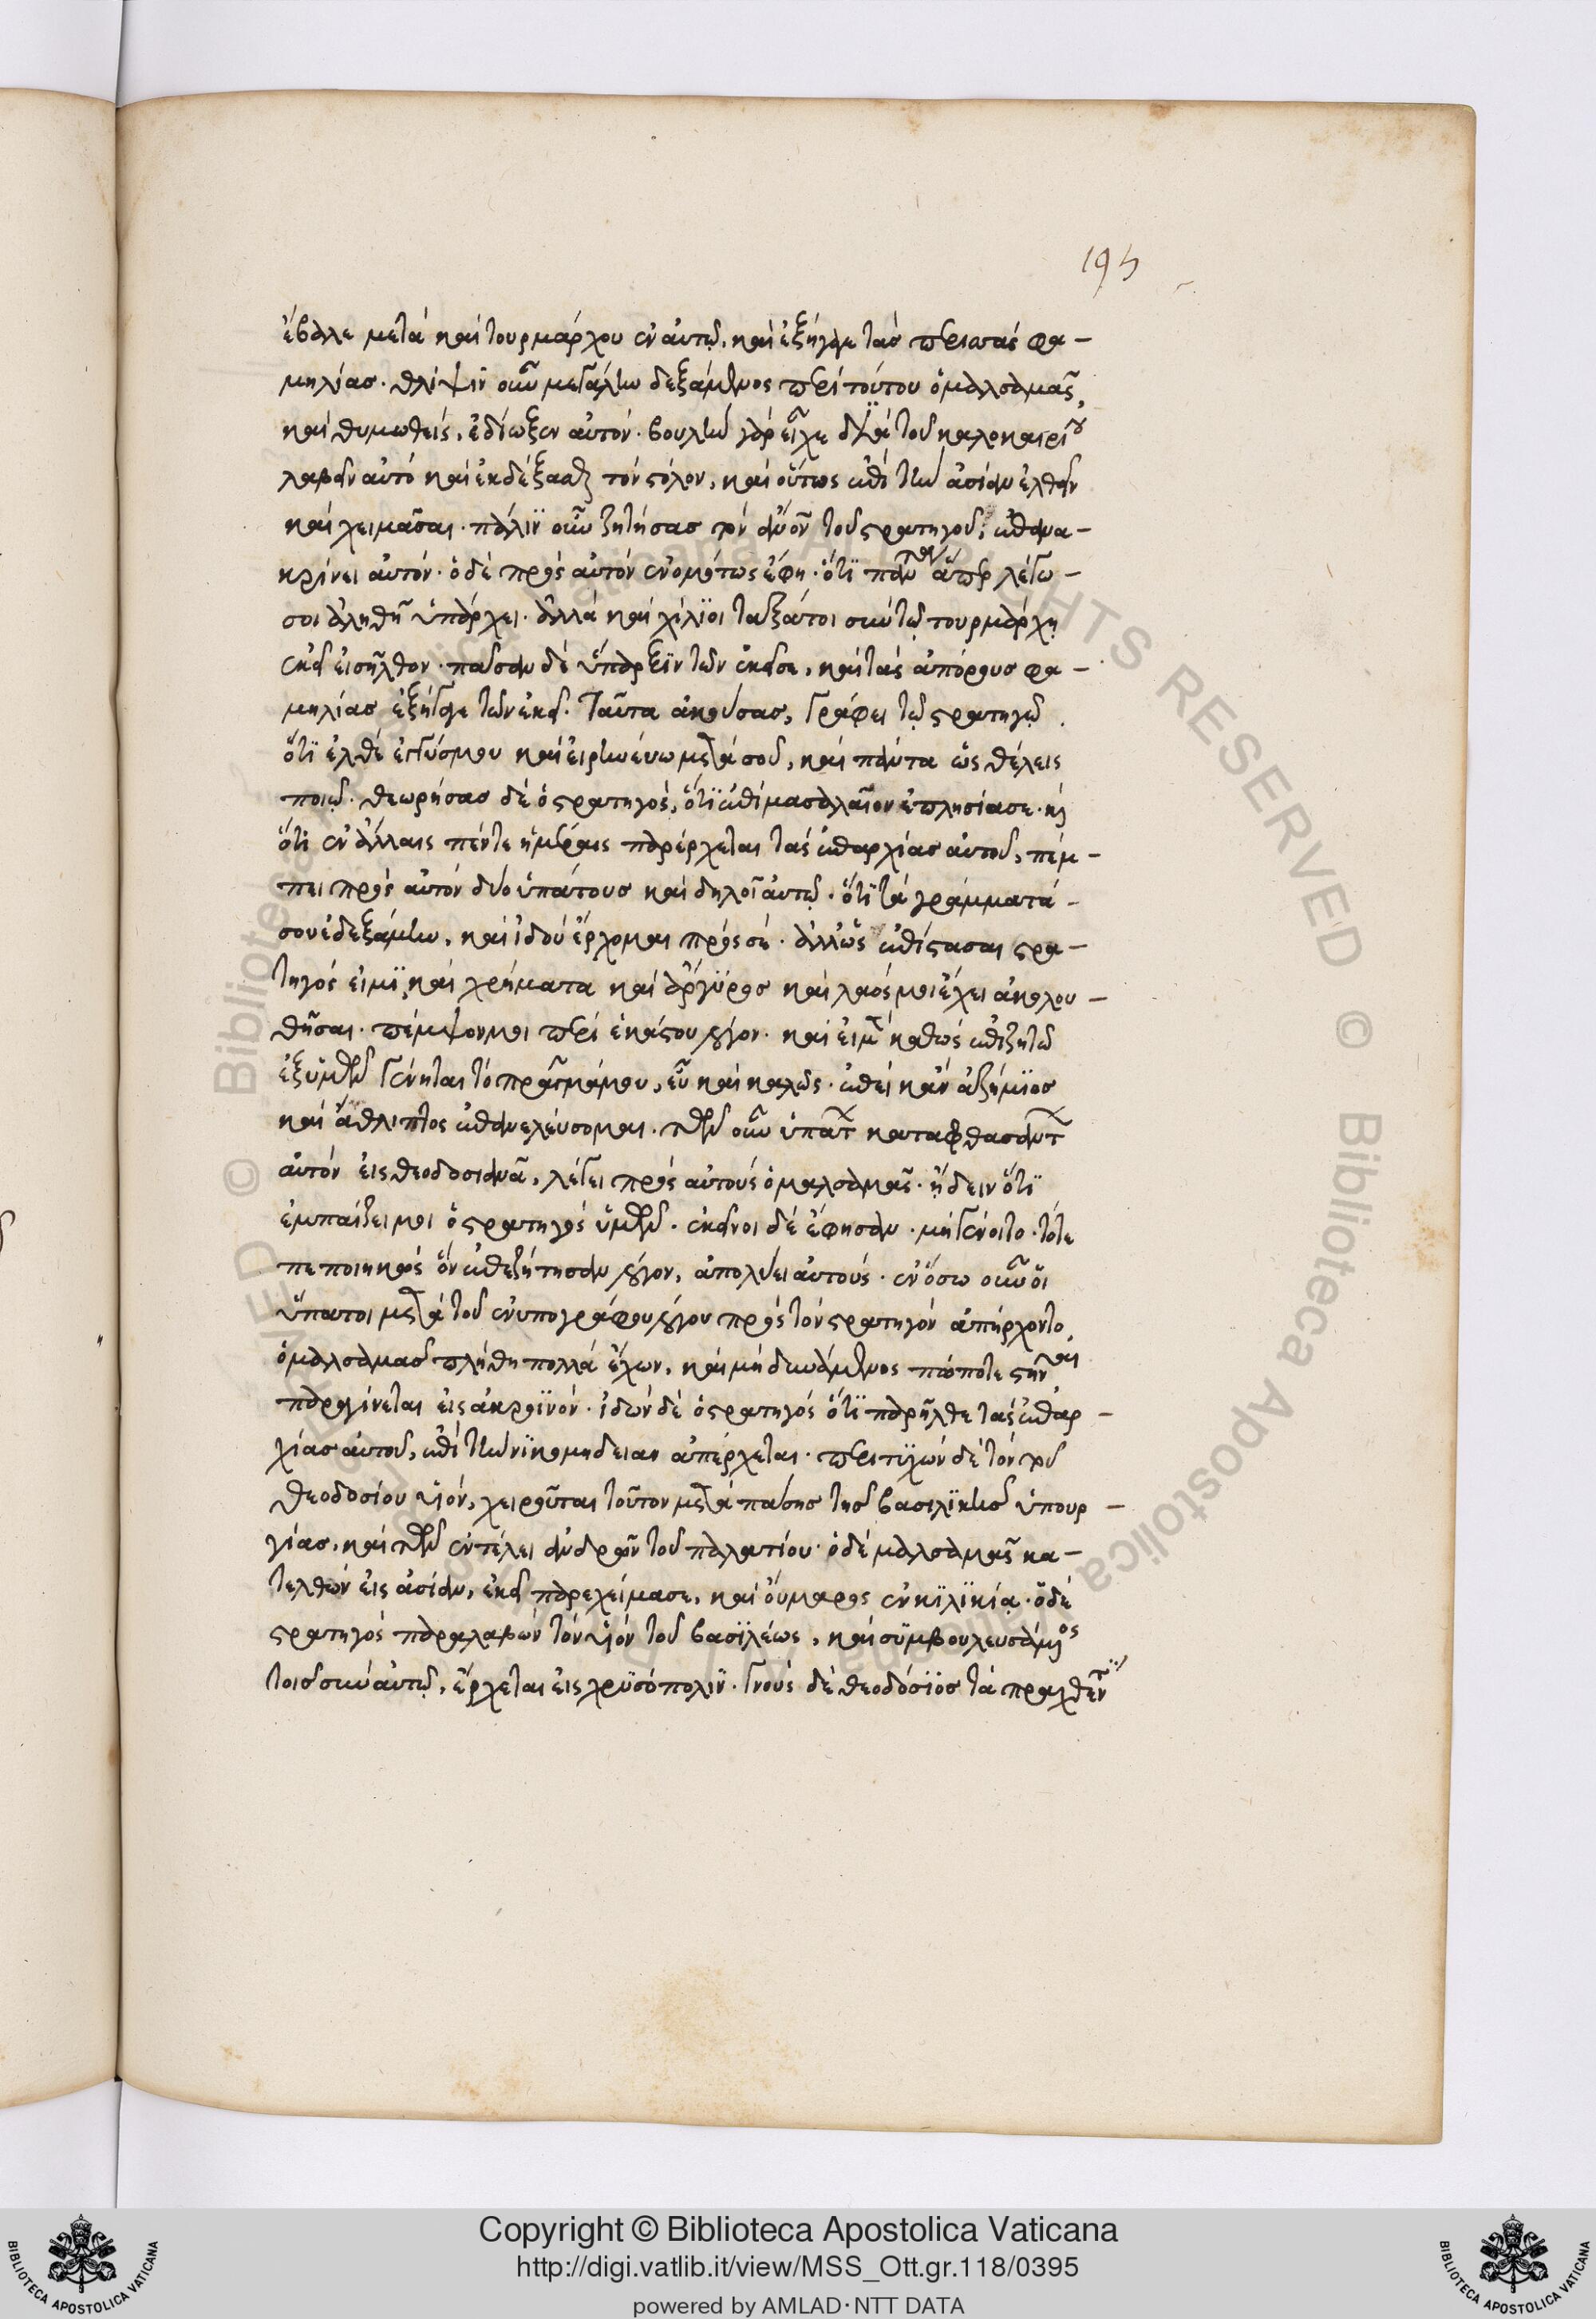 195
ἔβαλε μετὰ καὶ τουρμάρχου ἐν αὐτῷ, καὶ ἐξήγαγε τὰς περισσὰς φα-
μηλίας. θλίψιν οὖν μεγάλην δεξάμενος περὶ τούτου ὁ μαλσαμᾶς,
καὶ θυμωθεὶς, ἐδίωξεν αὐτόν. βουλὴν γὰρ εἶχε διὰ τοῦ καλοκαιρίου
λαβεῖν αὐτὸ καὶ ἐκδέξασθαι τὸν στόλον, καὶ οὕτως ἐπὶ τὴν ἀσίαν ἐλθεῖν
καὶ χειμᾶσαι. πάλιν οὖν ζητήσας τὸν ἄνθρωπον τοῦ στρατηγοῦ, ἐπανα-
κρίνει αὐτόν. ὁ δὲ πρὸς αὐτὸν ἐνομότως ἔφη. ὅτι πάντα ἅπερ λέγω
σοι ἀληθῆ ὑπάρχει. ἀλλὰ καὶ χίλιοι ταξάτοι σὺν τῷ τουρμάρχῃ
ἐκεῖ εἰσῆλθον. πᾶσαν δὲ ὕπαρξιν τῶν ἐκεῖσε, καὶ τὰς ἀπόρους φα-
μηλίας ἐξήγαγε τῶν ἐκεῖ. Ταῦτα ἀκούσας, γράφει τῷ στρατηγῷ
ὅτι ἐλθὲ ἐγγύς μου καὶ εἰρηνεύω μετὰ σοῦ, καὶ πάντα ὡς θέλεις
ποιῶ. θεωρήσας δὲ ὁ στρατηγὸς, ὅτι ἐπὶ μασαλαῖον ἐπλησίασε. καὶ
ὅτι ἐν ἄλλαις πέντε ἡμέραις παρέρχεται τὰς ἐπαρχίας αὐτοῦ, πέμ-
πει πρὸς αὐτὸν δύο ὑπάτους καὶ δηλοῖ αὐτῷ. ὅτι τὰ γράμματά
σου ἐδεξάμην, καὶ ἰδοὺ ἔρχομαι πρὸς σέ. ἀλλ' ὡς ἐπίστασαι στρα-
τηγός εἰμι, καὶ χρήματα καὶ ἄργυρος καὶ λαός μοι ἔχει ἀκολου-
θῆσαι. πέμψον μοι περὶ ἑκάστου λόγον. καὶ εἰ μὲν καθὼς ἐπιζητῶ
ἐξ ὑμῶν γένηται τὸ πρᾶγμά μου, εὖ καὶ καλῶς. ἐπεὶ κἂν ἀζήμιος
καὶ ἄθλιπτος ἐπανελεύσομαι. τῶν οὖν ὑπάτων καταφθασάντων
αὐτὸν εἰς θεοδοσιανὰ, λέγει πρὸς αὐτοὺς ὁ μαλσαμᾶς. ᾔδειν ὅτι
ἐμπαίζει μοι ὁ στρατηγὸς ὑμῶν. ἐκεῖνοι δὲ ἔφησαν. μὴ γένοιτο. τότε
πεποιηκὼς ὃν ἐπεζήτησαν λόγον, ἀπολύει αὐτούς. ἐν ὅσω οὖν οἱ
ὕπατοι μετὰ τοῦ ἐνυπογράφου λόγου πρὸς τὸν στρατηγὸν ἀπήρχοντο,
ὁ μαλσαμᾶς πλήθη πολλὰ ἔχων, καὶ μὴ δυνάμενος πώποτε στῆναι
παραγίνεται εἰς ἀκροϊνόν. ἰδὼν δὲ ὁ στρατηγὸς ὅτι παρῆλθε τὰς ἐπαρ-
χίας αὐτοῦ, ἐπὶ τὴν νικομηδειαν ἀπέρχεται. περιτυχὼν δὲ τὸν τοῦ
θεοδοσίου υἱόν, χειροῦται τοῦτον μετὰ πάσης τῆς βασιλικῆς ὑπουρ-
γίας, καὶ τῶν ἐν τέλει ἀνδρῶν τοῦ παλατίου. ὁ δὲ μαλσαμᾶς κα-
τελθὼν εἰς ἀσίαν, ἐκεῖ παρεχείμασε, καὶ οὔμαρος ἐν κιλικίᾳ. ὁ δὲ
στρατηγὸς παραλαβὼν τὸν υἱὸν τοῦ βασιλέως, καὶ συμβουλευσάμενος
τοῖς σὺν αὐτῷ, ἔρχεται εἰς χρυσόπολιν. γνοὺς δὲ θεοδόσιος τὰ πραχθέντα
© Biblioteca Apostolica Vaticana. ALL RIGHTS RESERVED
Copyright © Biblioteca Apostolica Vaticana
http://digi.vatlib.it/view/MSS_Ott.gr.118/0395
powered by AMLAD·NTT DATA
BIBLIOTECA APOSTOLICA VATICANA
BIBLIOTECA APOSTOLICA VATICANA